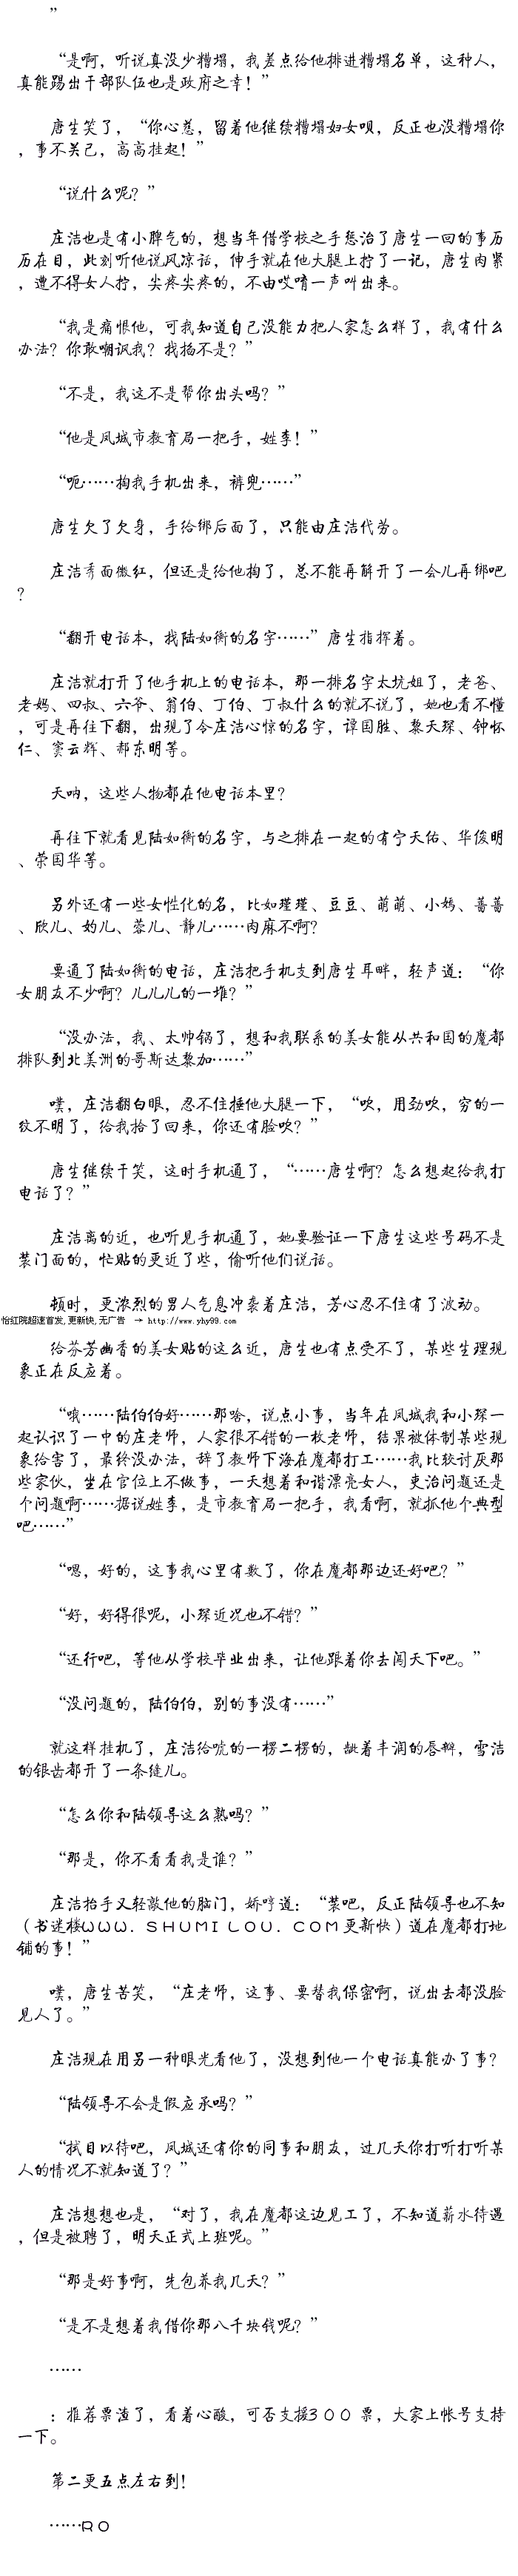 ”
“是啊，听说真没少糟塌，我差点给他排进糟塌名单，这种人，
真能踢出干部队伍也是政府之幸！”
唐生笑了，“你心慈，留着他继续糟塌妇女呗，反正也没糟塌你
，事不关己，高高挂起！”
“说什么呢？”
庄洁也是有小脾气的，想当年借学校之手惩治了唐生一回的事历
历在目，此刻听他说风凉话，伸手就在他大腿上拧了一记，唐生肉紧
，遭不得女人拧，尖疼尖疼的，不由哎唷一声叫出来。
“我是痛恨他，可我知道自己没能力把人家怎么样了，我有什么
办法？你敢嘲讽我？找掐不是？”
“不是，我这不是帮你出头吗？”
“他是凤城市教育局一把手，姓李！”
“呃……掏我手机出来，裤兜……”
唐生欠了欠身，手给绑后面了，只能由庄洁代劳。
庄洁秀面微红，但还是给他掏了，总不能再解开了一会儿再绑吧
？
“翻开电话本，找陆如衡的名字……”唐生指挥着。
庄洁就打开了他手机上的电话本，那一排名字太坑姐了，老爸、
老妈、四叔、六爷、翁伯、丁伯、丁叔什么的就不说了，她也看不懂
，可是再往下翻，出现了令庄洁心惊的名字，谭国胜、黎天琛、钟怀
仁、窦云辉、郝东明等。
天呐，这些人物都在他电话本里？
再往下就看见陆如衡的名字，与之排在一起的有宁天佑、华俊明
、荣国华等。
另外还有一些女性化的名，比如瑾瑾、豆豆、萌萌、小嫣、蔷蔷
、欣儿、妁儿、蓉儿、静儿……肉麻不啊？
要通了陆如衡的电话，庄洁把手机支到唐生耳畔，轻声道：“你
女朋友不少啊？儿儿儿的一堆？”
“没办法，我、太帅锅了，想和我联系的美女能从共和国的魔都
排队到北美洲的哥斯达黎加……”
噗，庄洁翻白眼，忍不住捶他大腿一下，“吹，用劲吹，穷的一
纹不明了，给我捡了回来，你还有脸吹？”
唐生继续干笑，这时手机通了，“……唐生啊？怎么想起给我打
电话了？”
庄洁离的近，也听见手机通了，她要验证一下唐生这些号码不是
装门面的，忙贴的更近了些，偷听他们说话。
顿时，更浓烈的男人气息冲袭着庄洁，芳心忍不住有了波动。
怡红院超速首发，更新快，无广告 → http://www.yhy99.com
给芬芳幽香的美女贴的这么近，唐生也有点受不了，某些生理现
象正在反应着。
“哦……陆伯伯好……那啥，说点小事，当年在凤城我和小琛一
起认识了一中的庄老师，人家很不错的一枚老师，结果被体制某些现
象给害了，最终没办法，辞了教师下海在魔都打工……我比较讨厌那
些家伙，坐在官位上不做事，一天想着和谐漂亮女人，吏治问题还是
个问题啊……据说姓李，是市教育局一把手，我看啊，就抓他个典型
吧……”
“嗯，好的，这事我心里有数了，你在魔都那边还好吧？”
“好，好得很呢，小琛近况也不错？”
“还行吧，等他从学校毕业出来，让他跟着你去闯天下吧。”
“没问题的，陆伯伯，别的事没有……”
就这样挂机了，庄洁给唬的一楞二楞的，龇着丰润的唇瓣，雪洁
的银齿都开了一条缝儿。
“怎么你和陆领导这么熟吗？”
“那是，你不看看我是谁？”
庄洁抬手又轻敲他的脑门，娇哼道：“装吧，反正陆领导也不知
（书迷楼ＷＷＷ．ＳＨＵＭＩＬＯＵ．ＣＯＭ更新快）道在魔都打地
铺的事！”
噗，唐生苦笑，“庄老师，这事、要替我保密啊，说出去都没脸
见人了。”
庄洁现在用另一种眼光看他了，没想到他一个电话真能办了事？
“陆领导不会是假应承吗？”
“拭目以待吧，凤城还有你的同事和朋友，过几天你打听打听某
人的情况不就知道了？”
庄洁想想也是，“对了，我在魔都这边见工了，不知道薪水待遇
，但是被聘了，明天正式上班呢。”
“那是好事啊，先包养我几天？”
“是不是想着我借你那八千块钱呢？”
……
：推荐票渣了，看着心酸，可否支援３００票，大家上帐号支持
一下。
第二更五点左右到！
……ＲＯ